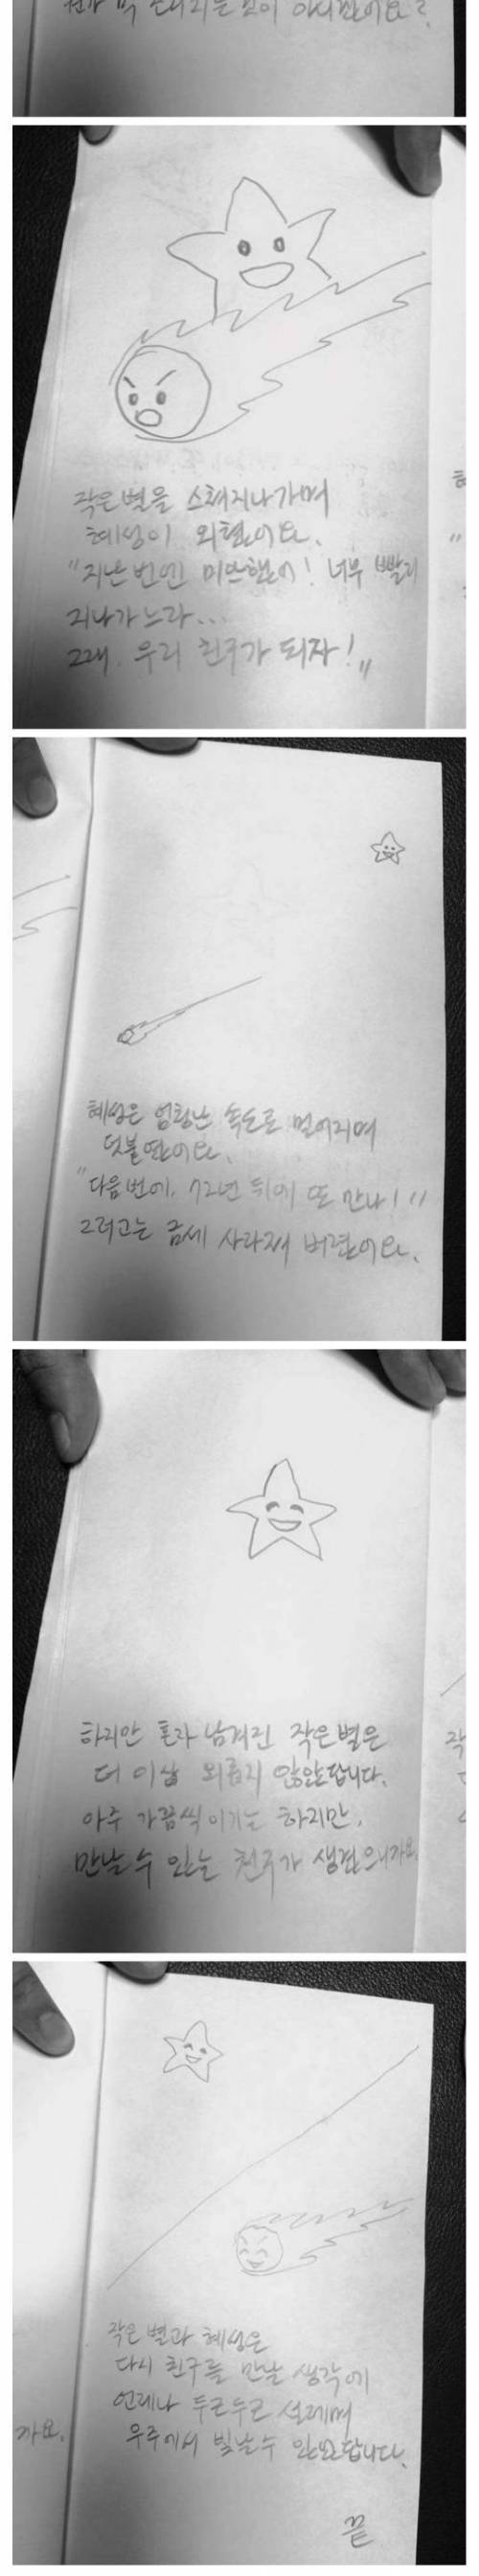 작은별을 스쳐지나가며
혜성이 외쳤어요.
"지난 번엔 미안했어! 너무 빨리
지나가느라...
그래. 우리 친구가 되자!"
혜성은 엄청난 속도로 멀어지며
덧붙였어요.
"다음번에, 72년 뒤에 또 만나!"
그러고는 금세 사라져 버렸어요.
하지만 혼자 남겨진 작은별은
더 이상 외롭지 않았답니다.
아주 가끔씩이기는 하지만,
만날 수 있는 친구가 생겼으니까요.
작은 별과 혜성은
다시 친구를 만날 생각에
언제나 두근두근 설레며
까요.
우주에서 빛날 수 있었답니다.
끝